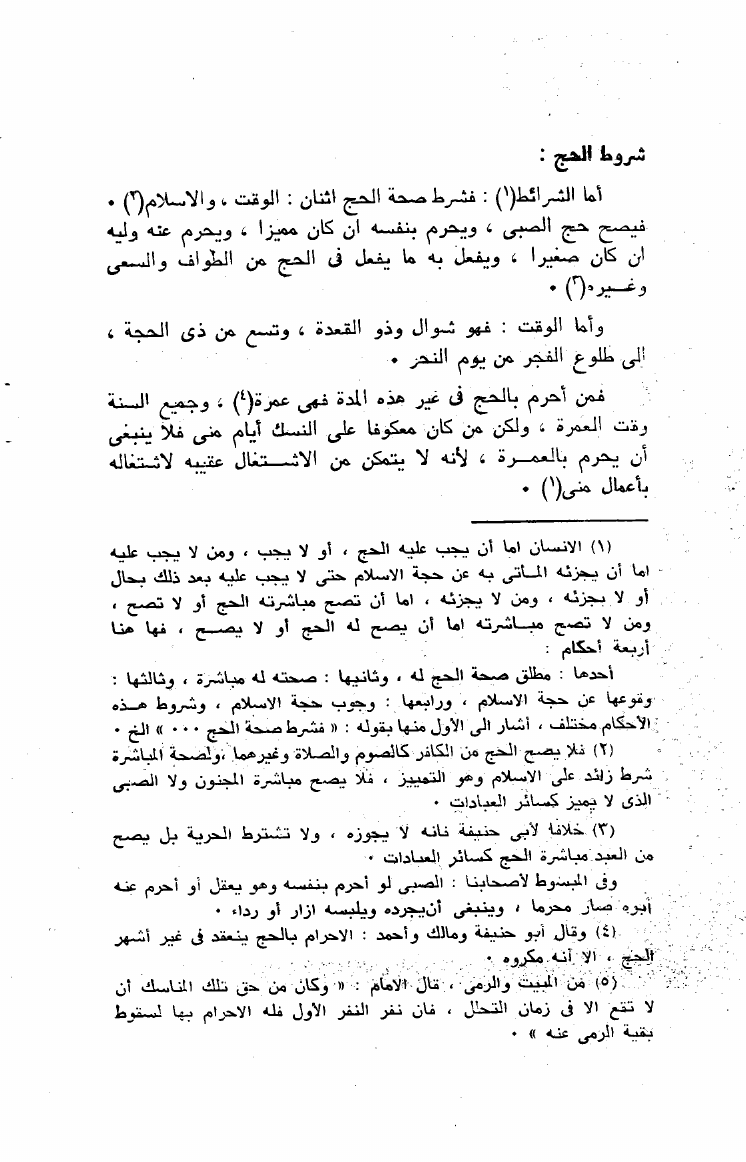 شروط الحج :
أما الشرائط(١) : فشرط صحة الحج اثنان : الوقت ، والاسلام(٢) ٠
فيصح حج الصبى ، ويحرم بنفسه ان كان مميزا ، ويحرم عنه وليه
ان كان صغيرا ، ويفعل به ما يفعل فى الحج من الطواف والسعى
وغـــيره(٣) ٠
وأما الوقت : فهو شوال وذو القعدة ، وتسع من ذى الحجة ،
الى طلوع الفجر من يوم النحر ٠
فمن أحرم بالحج فى غير هذه المدة فهى عمرة(٤) ، وجميع السنة
وقت العمرة ، ولكن من كان معكوفا على النسك أيام منى فلا ينبغى
أن يحرم بالعمـــرة ، لأنه لا يتمكن من الاشـــتغال عقيبه لاشتغاله
بأعمال منى(١) ٠
(١) الانسان اما أن يجب عليه الحج ، أو لا يجب ، ومن لا يجب عليه
اما أن يجزئه المـأتى به عن حجة الاسلام حتى لا يجب عليه بعد ذلك بحال
أو لا يجزئه ، ومن لا يجزئه ، اما أن تصح مباشرته الحج أو لا تصح ،
ومن لا تصح مبـــاشرته اما أن يصح له الحج أو لا يصـــح ، فها هنا
أربعة أحكام :
أحدها : مطلق صحة الحج له ، وثانيها : صحته له مباشرة ، وثالثها :
وقوعها عن حجة الاسلام ، ورابعها : وجوب حجة الاسلام ، وشروط هـــذه
الأحكام مختلف ، أشار الى الأول منها بقوله : « فشرط صحة الحج ٠٠٠ » الخ ٠
(٢) فلا يصح الحج من الكافر كالصوم والصلاة وغيرهما ،ولصحة المباشرة
شرط زائد على الاسلام وهو التمييز ، فلا يصح مباشرة المجنون ولا الصبى
الذى لا يميز كسائر العبادات ٠
(٣) خلافا لأبى حنيفة فانه لا يجوزه ، ولا تشترط الحرية بل يصح
من العبد مباشرة الحج كسائر العبادات ٠
وفى المبسوط لأصحابنا : الصبى لو أحرم بنفسه وهو يعقل أو أحرم عنه
أبوه صار محرما ، وينبغى أن يجرده ويلبسه ازار أو رداء ٠
(٤) وقال أبو حنيفة ومالك وأحمد : الاحرام بالحج ينعقد فى غير أشهر
الحج ، الا أنه مكروه ٠
(٥) من المبيت والرمى ، قال الامام : « وكان من حق تلك المناسك أن
لا تقع الا فى زمان التحلل ، فان نفر النفر الأول فله الاحرام بها لسقوط
بقية الرمى عنه » ٠